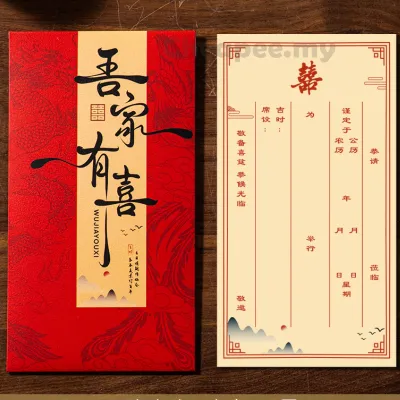 吾家有喜
WUJIAYOUXI
pee.my
囍
恭请 莅临
谨定于 公历 年 月 日 星期
农历 年 月 日
为 举行
吉时：
席设：
敬备喜筵 恭候光临 敬邀